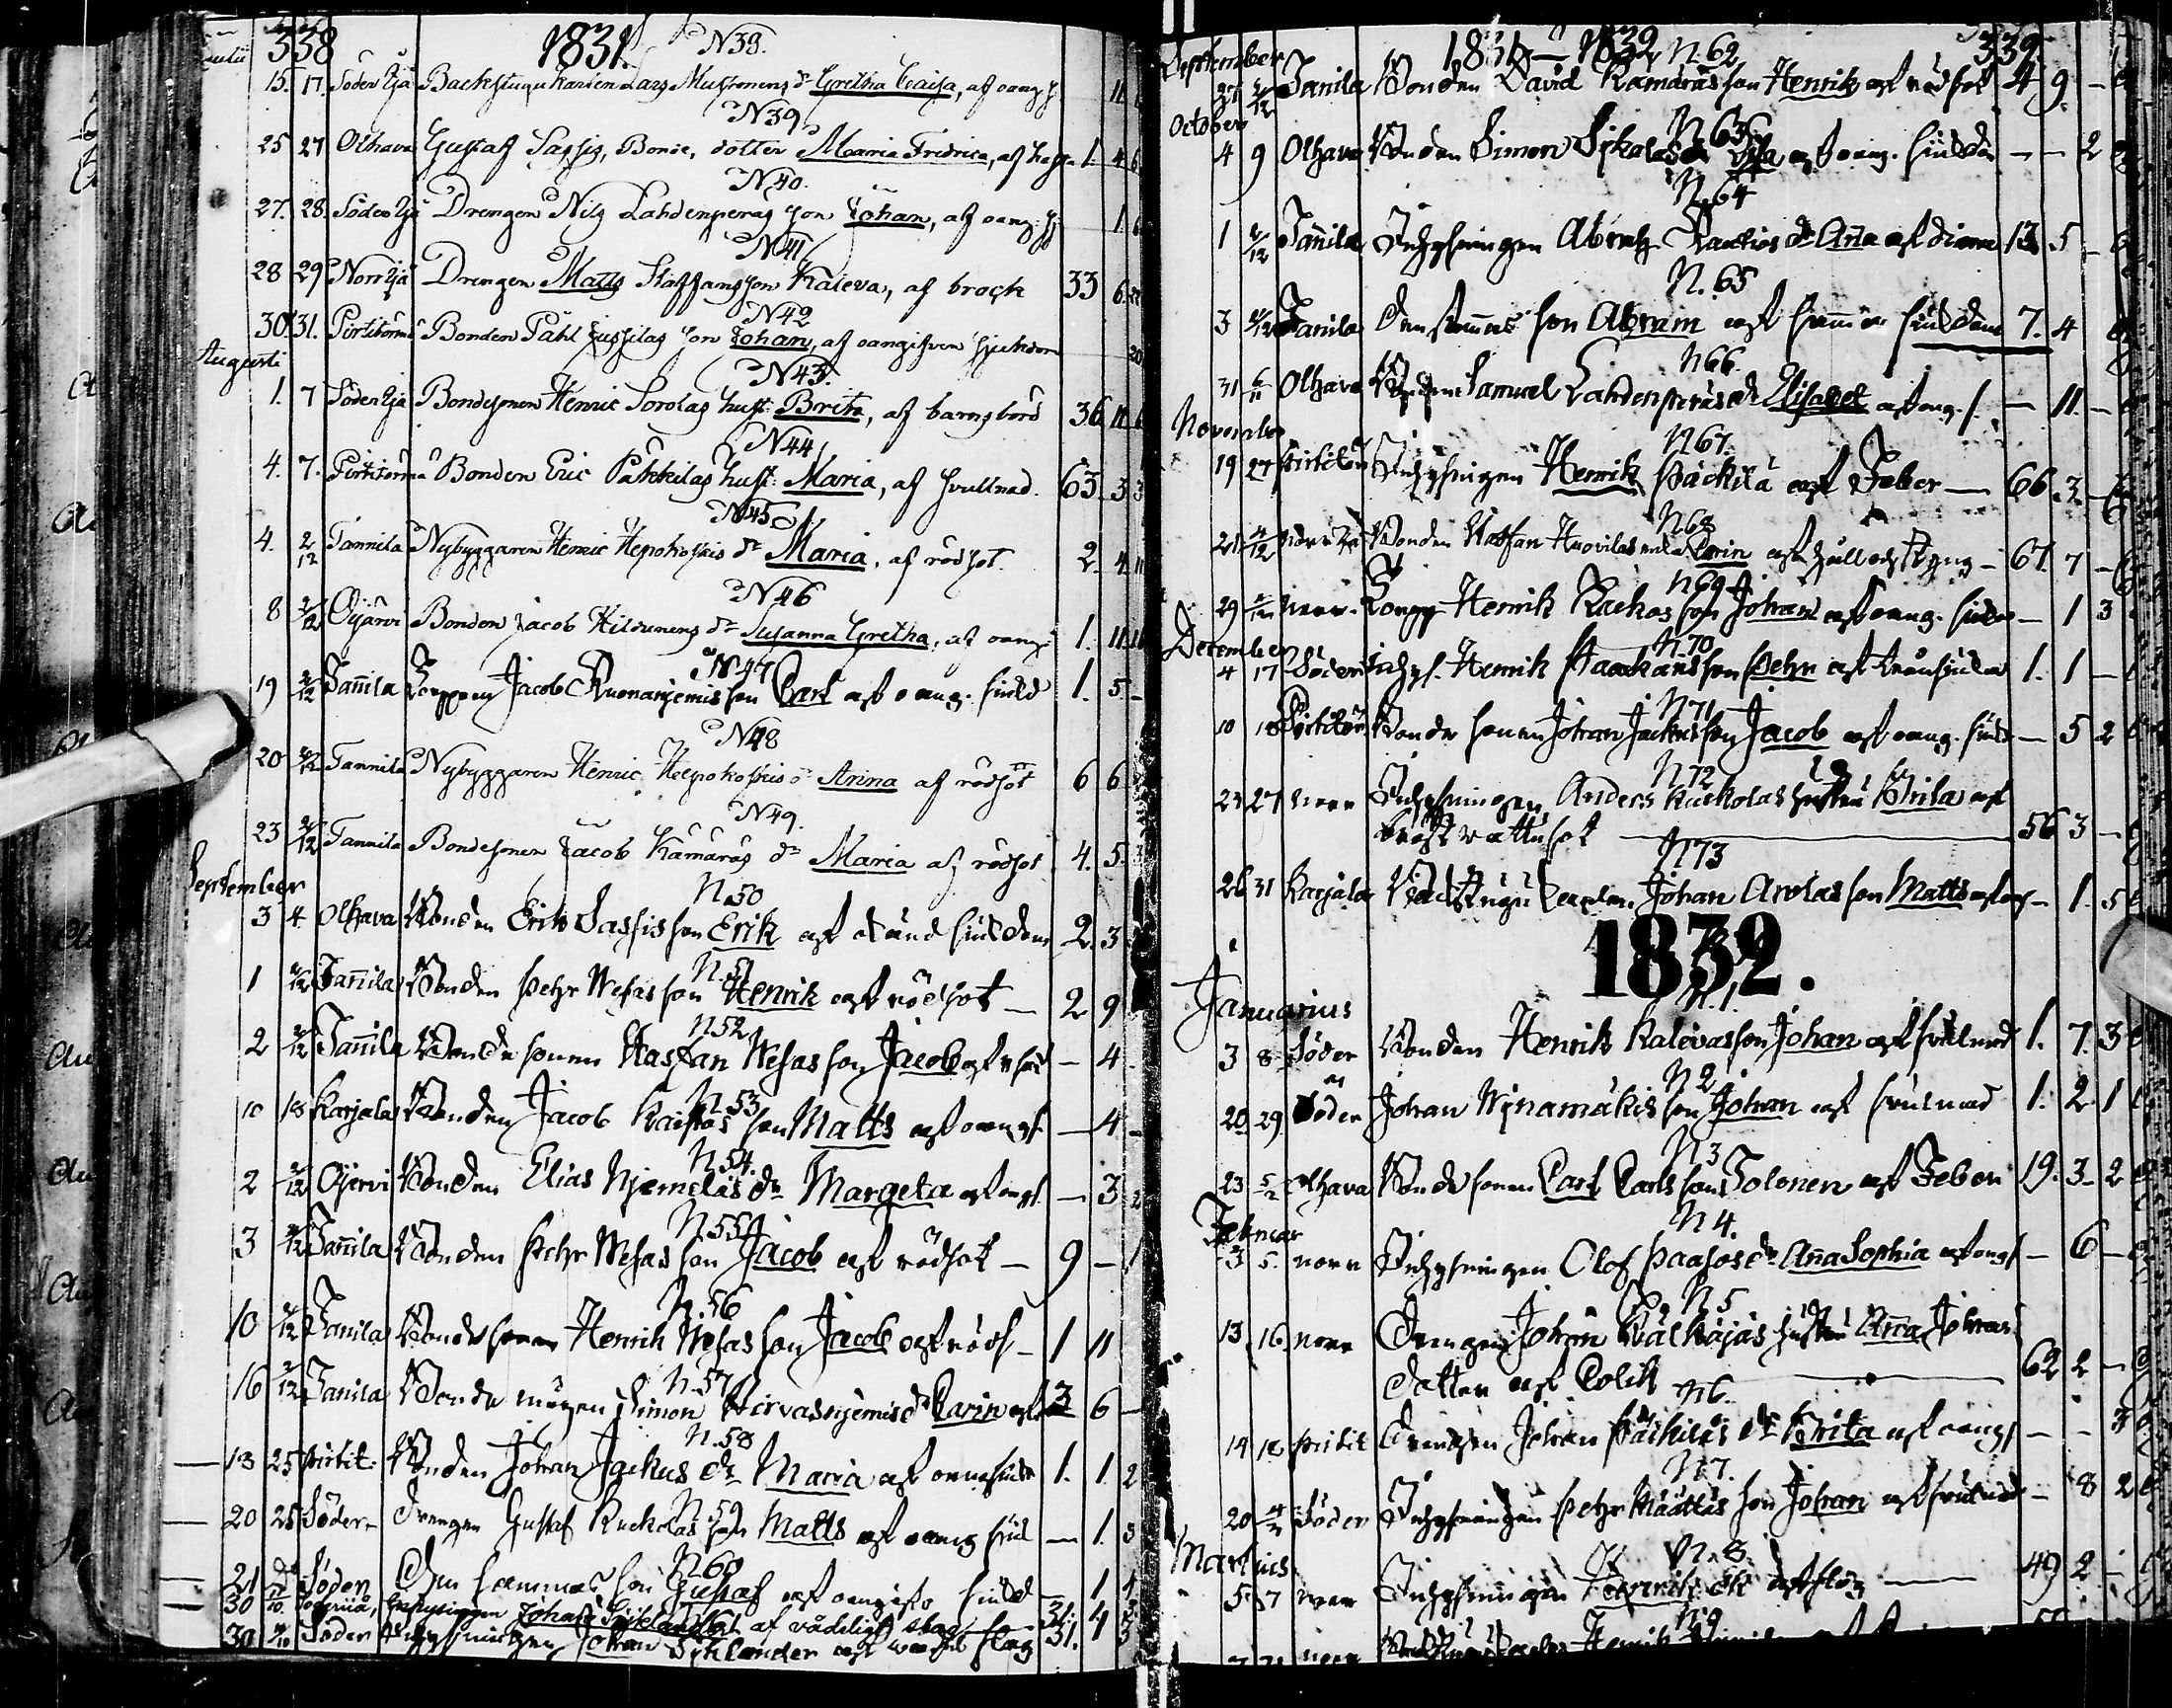 338 1831.
Julii
N39.
15. 17. Söder Ijå Backstugukarlen Lars Mustonens dr Gretha Caisa, af oang. sj 11
N39
25 27 Olhava Gustaf Sassis, Bonde, dotter Maria Fridrica, af 1. 4 6
N40.
27. 28. Söder Ijå Drengen Nils Lahdenperas son Johan, af oang. sj 1. 6
N41
28 29 Norr Ijå Drengen Matts Staffansson Kaleva, af bråck 33 6. 22
N42
30. 31. Pirttitörmä Bonden Påhl Jussilas son Johan, af oangifven sjukdom 20
Augusti
N43.
1. 7 Söder Ijå Bondesonen Henric Sorolas hust: Brita, af barnsbörd 36 11 6
N44
4. 7. Pirttitörmä Bonden Eric Päkkilas hust: Maria, af svullnad. 63 3 3
N45
4. 2/12 Tannila Nybyggaren Henric Hepokoskis dr Maria, af rödsot. 2. 4. 11
N46
8 2/12 Oijärvi Bonden Jacob Hildunens dr Susanna Gretha, af oang. 1. 11
N47
19 2/12 Tañila Jacob Kuonanjemis son Carl af oang. siukd 1. 5 -
N48
20 2/12 Tannila Nybyggaren Henric Hepokoskis dr Anna af rödsot 6 6
N49.
23 2/12 Tannila Bondesonen Jacob Kamäräs dr Maria af rödsot 4. 5
September
N.50
3 4 Olhava Bonden Erik Sassis son Erik af okänd siukdom 2. 3
N.51
1 2/12 Tañila Bonden Petr Wesas son Henrik af rödsot — 2 9
N52
2 2/12 Tañila Bonde sonen Staffan Wesas son Jacob af rsot — 4
N53
10 18 Karjala Bonden Jacob Kaistos son Matts af oangf — 4 -
N54.
2 2/12 Oijervi Bonden Elias Njemeläs dr Margeta af oangf. — 3 2
N55
3 2/12 Tañila Bonden Petr Wesas son Jacob af rödsot — 9 —
N.56
10 2/12 Tanila Bondesonen Henrik Wesas son Jacob af röds — 1 11
N.57
16 2/12 Tanila Bonde mågen Simon Hirvasnjemis dr Carin af 3 6 —
N.58
13 25 Pirtit: Bonden Johan Jackus dr Maria af oanf siukd 1. 1. 2
N.59
20 25 Söder Drengen Gustaf Kuckolas son Matts af oang siuk — 1. 3
N60
21 Söder Den sammas son Gustaf af oangifv siukd — 1 1
30 Söderijå, Inhysingen Johan Syklander af vådeligt slag 31. 4
30 Söder Inhysningen Johan Syklander af wåde slag 31. 4 3
1831—1832 339
September
N.62
27 2/12 Tanila Bonden David Kamäräs son Henrik af rödsot 4 9 —
October
N.63
4 9 Olhava Bonden Simon Sykolas af oang. siukdom — — 2
N.64
1 2/12 Tañila Inhysningen Abrah Kackos dr Aña af 13 5 —
N.65
3 2/12 Tanila Den sammas son Abram af samma siukdom 7. 4
N66.
31 6/11 Olhava Bonden Samuel Lahdenperas dr Elisabet af oang. s. — 11. —
November
N67.
19 27 Pirtitör Inhysningen Henrik Päckilä af Feber — 66. 3 —
N68
21 4/12 Norr Ijå Bonden Staffan Huovilas enka Carin af håll och styng — 67. 7 —
N69
29 Norr Henrik Kackos son Johan af oang. siukd — 1 3
December
N.70
4 17 Söder Inhys. Henrik son Petr af siukdom 1. 1 —
N71
10 18 Pirtitör Bonde sonen Johan Jackus son Jacob af oang. siukd — 5 2
N72
23 27 Norr Inhysningen Anders Kuckolas hustru Brita af
bröst vattusot — 56 3 —
N73
26 31 Karjala Backstugu karlen Johan Arolas son Matts af oangf — 1. 5
1832.
Januarius
N.1.
3 8 Söder Bonden Henrik Kalevas son Johan af svulnad 1. 7. 3
N2
20 29 Söder Johan Wynamäkis son Johan af svulnad 1. 2 1
N3
23 5/2 Olhava Bonde sonen Carl Carls son Tolonen af Feber 19. 3 2
Februar
N4.
3 5. Norr Inhysningen Olof Paasos dr Aña Sophia af oangf — 6 —
N5
13 16. Norr Drengen Johan Kälkäjäs hustru Aña Johans
Dotter af Colik — 62 2 —
N6.
14 18 Pirtit Drengen Johan Päckiläs dr Brita af oangf — — 3
N7.
20 4/3 Söder Inhysningen Petr Määttäs son Johan af svulnad — 8 2
Martius
N.8.
5 7 Norr Inhysningen Henrik Ök af slag — 49 2 —
N9
Norr Backstugu karlen Henrik